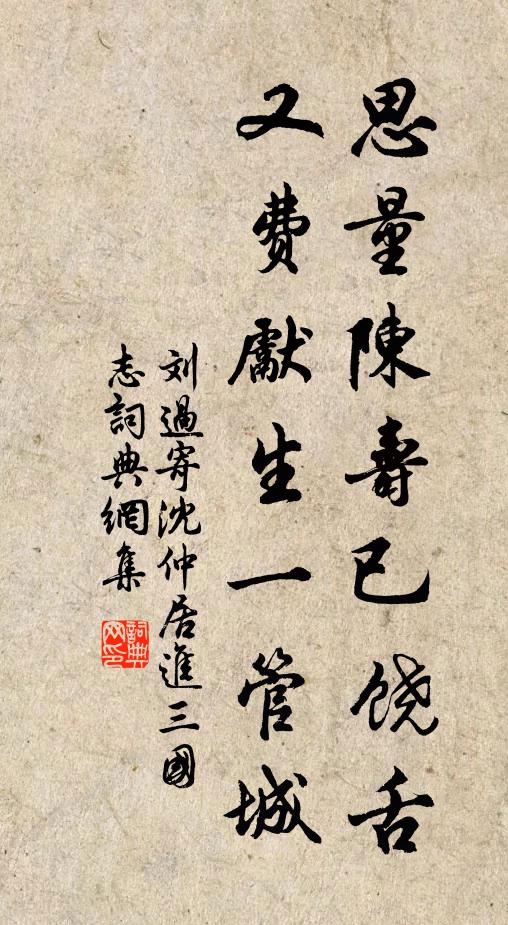 思量陳壽已饶舌
又費獻生一管城
刘過寄沈仲居進三國
志詞典網集
詞典
网印